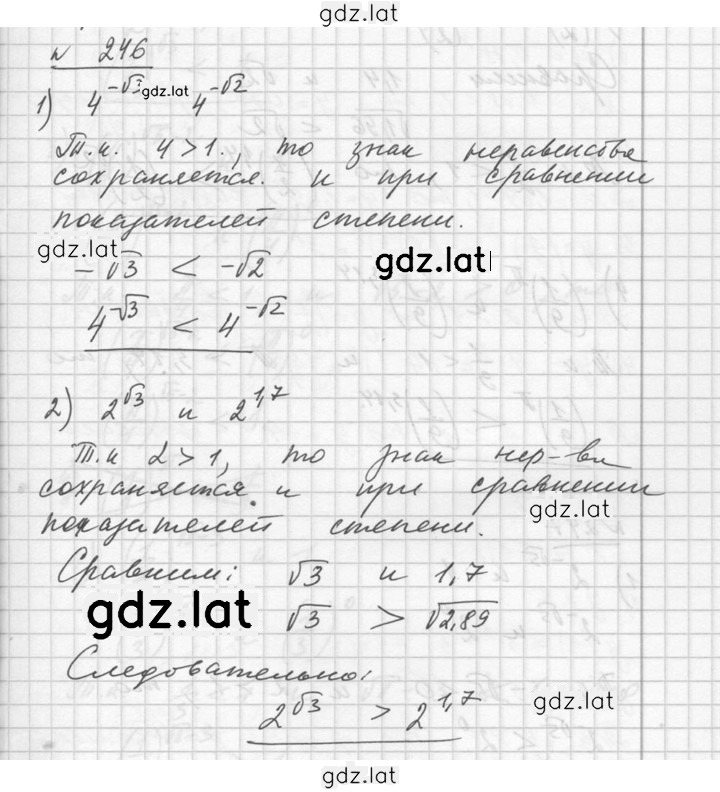 gdz.lat
№ 246
1) 4^{-√3} gdz.lat 4^{-√2}
Т.к. 4 > 1, то знак неравенства
сохраняется и при сравнении
показателей степени.
gdz.lat
-√3 < -√2 gdz.lat
4^{-√3} < 4^{-√2}
2) 2^{√3} и 2^{1,7}
Т.к 2 > 1, то знак нер-ва
сохраняется и при сравнении
gdz.lat
показателей степени.
Сравним: √3 и 1,7
gdz.lat √3 > √2,89
Следовательно:
gdz.lat
2^{√3} > 2^{1,7}
gdz.lat